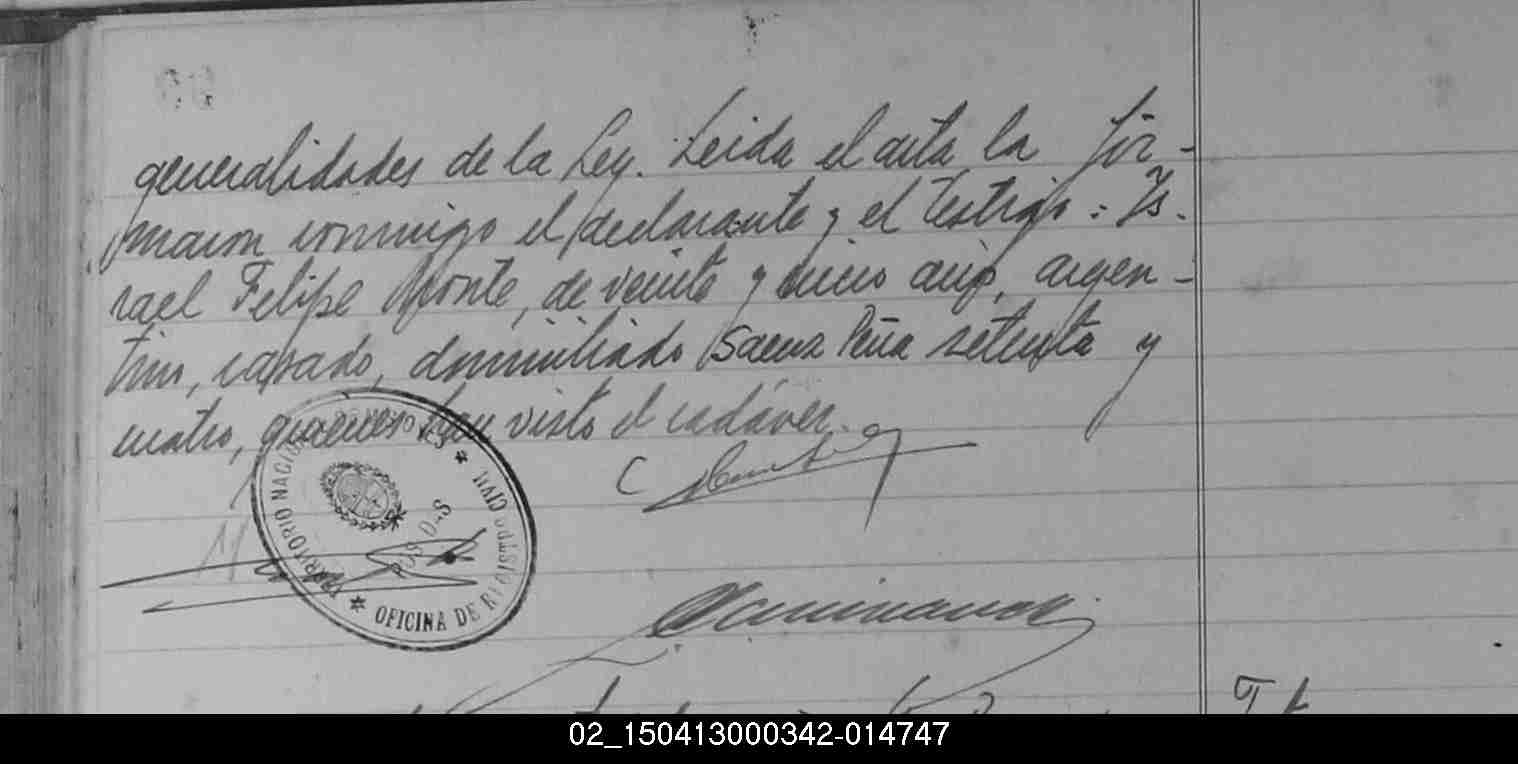 generalidades de la Ley. Leida el acta la fir-
maron conmigo el declarante y el testigo: Is-
rael Felipe Aponte, de veinte y cinco años, argen-
tino, casado, domiciliado Saenz Peña setenta y
cuatro, quienes han visto el cadáver.
TERRITORIO NACIONAL
OFICINA DE REGISTRO CIVIL
02_150413000342-014747